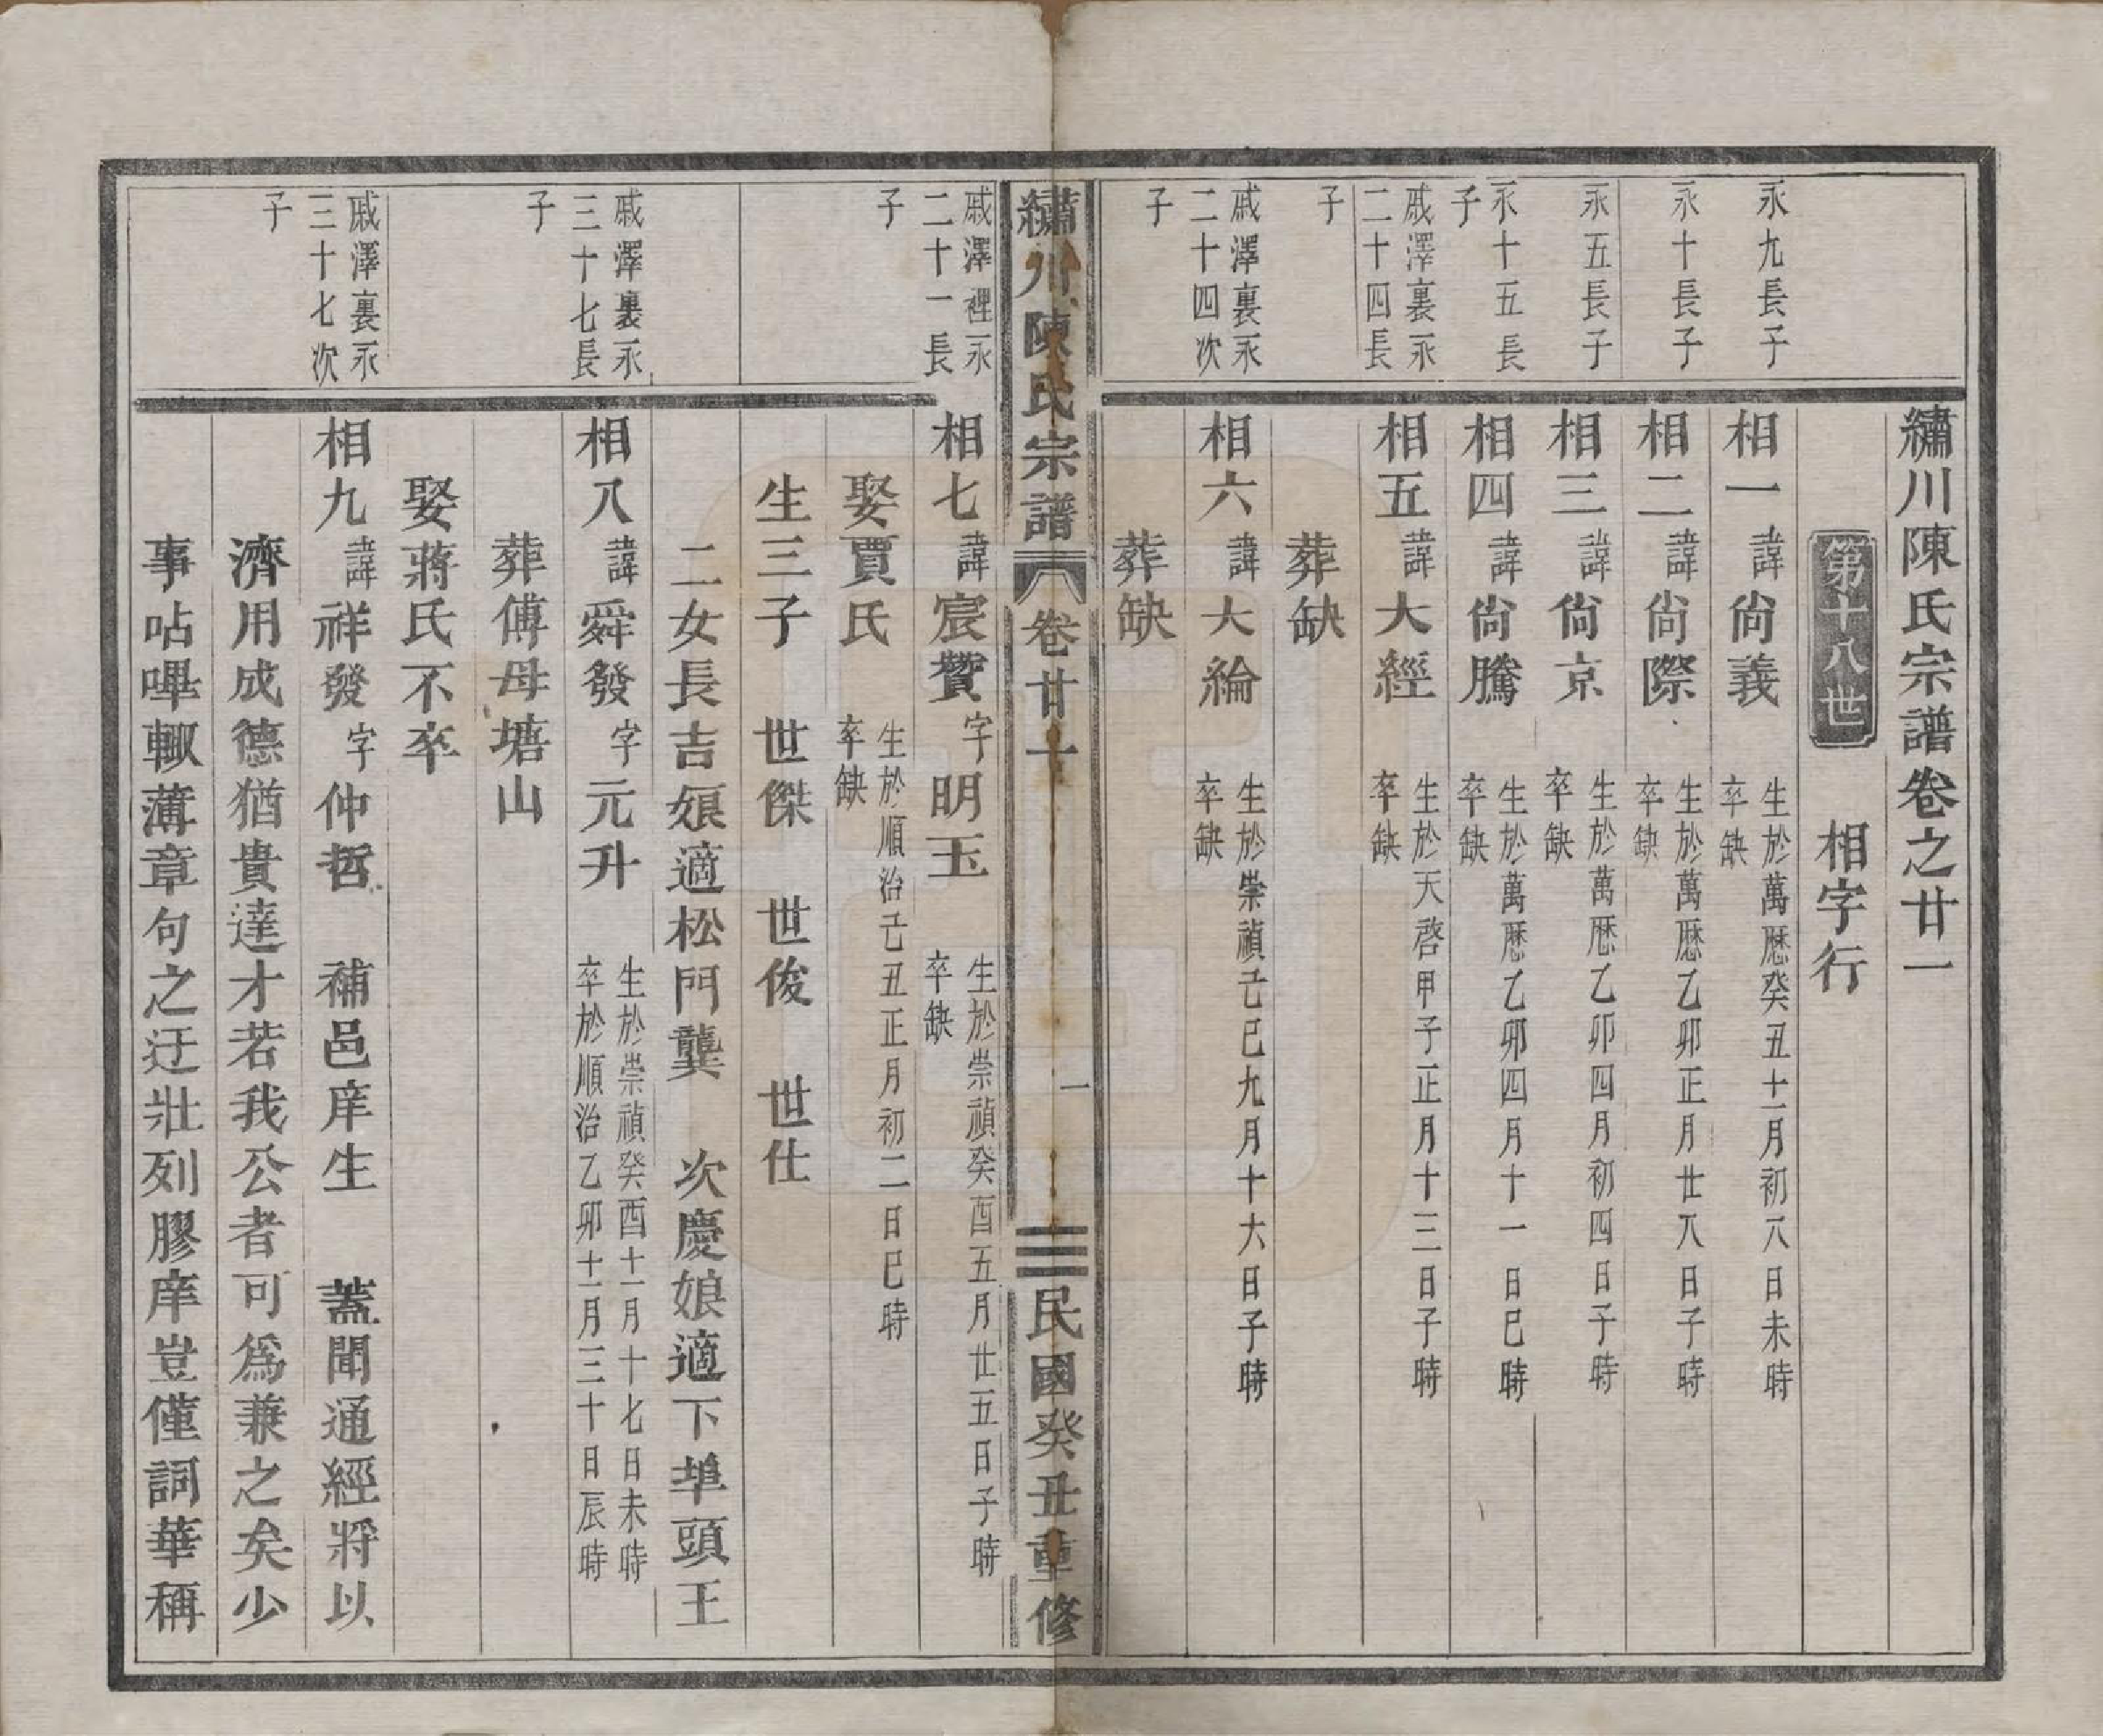 繡川陳氏宗譜卷之廿一
第十八世
相字行
永九長子
相一諱尙義
生於萬歷癸丑十一月初八日未時
卒缺
永十長子
相二諱尙際
生於萬歷乙卯正月廿八日子時
卒缺
永五長子
相三諱尙京
生於萬歷乙卯四月初四日子時
卒缺
永十五長
子
相四諱尙騰
生於萬歷乙卯四月十一日巳時
卒缺
戚澤裏永
二十四長
子
相五諱大經
生於天啓甲子正月十三日子時
卒缺
葬缺
戚澤裏永
二十四次
子
相六諱大綸
生於崇禎己巳九月十六日子時
卒缺
葬缺
繡川陳氏宗譜
卷廿一
一
民國癸丑重修
戚澤裡永
二十一長
子
相七諱宸贊字明玉
生於崇禎癸酉五月廿五日子時
卒缺
娶賈氏
生於順治己丑正月初二日巳時
卒缺
生三子 世傑 世俊 世仕
二女長吉娘適松門龔 次慶娘適下埠頭王
戚澤裏永
三十七長
子
相八諱舜發字元升
生於崇禎癸酉十一月十七日未時
卒於順治乙卯十二月三十日辰時
葬傅母塘山
娶蔣氏不卒
戚澤裏永
三十七次
子
相九諱祥發字仲哲 補邑庠生 蓋聞通經將以
濟用成德猶貴達才若我公者可爲兼之矣少
事呫嗶輙薄章句之迂壯列膠庠豈僅詞華稱